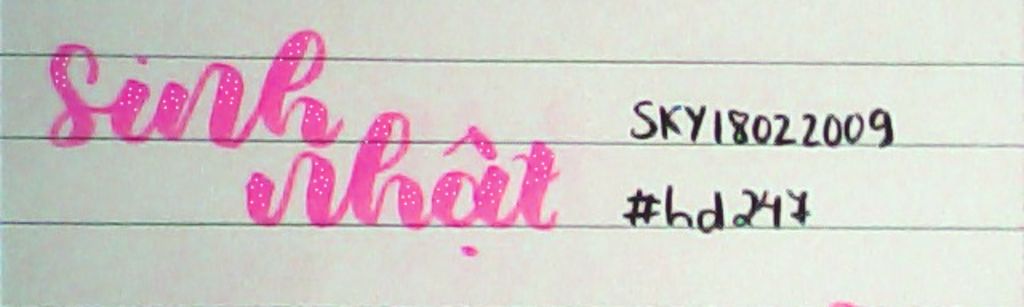 sinh
nhật
SKY18022009
#hd247